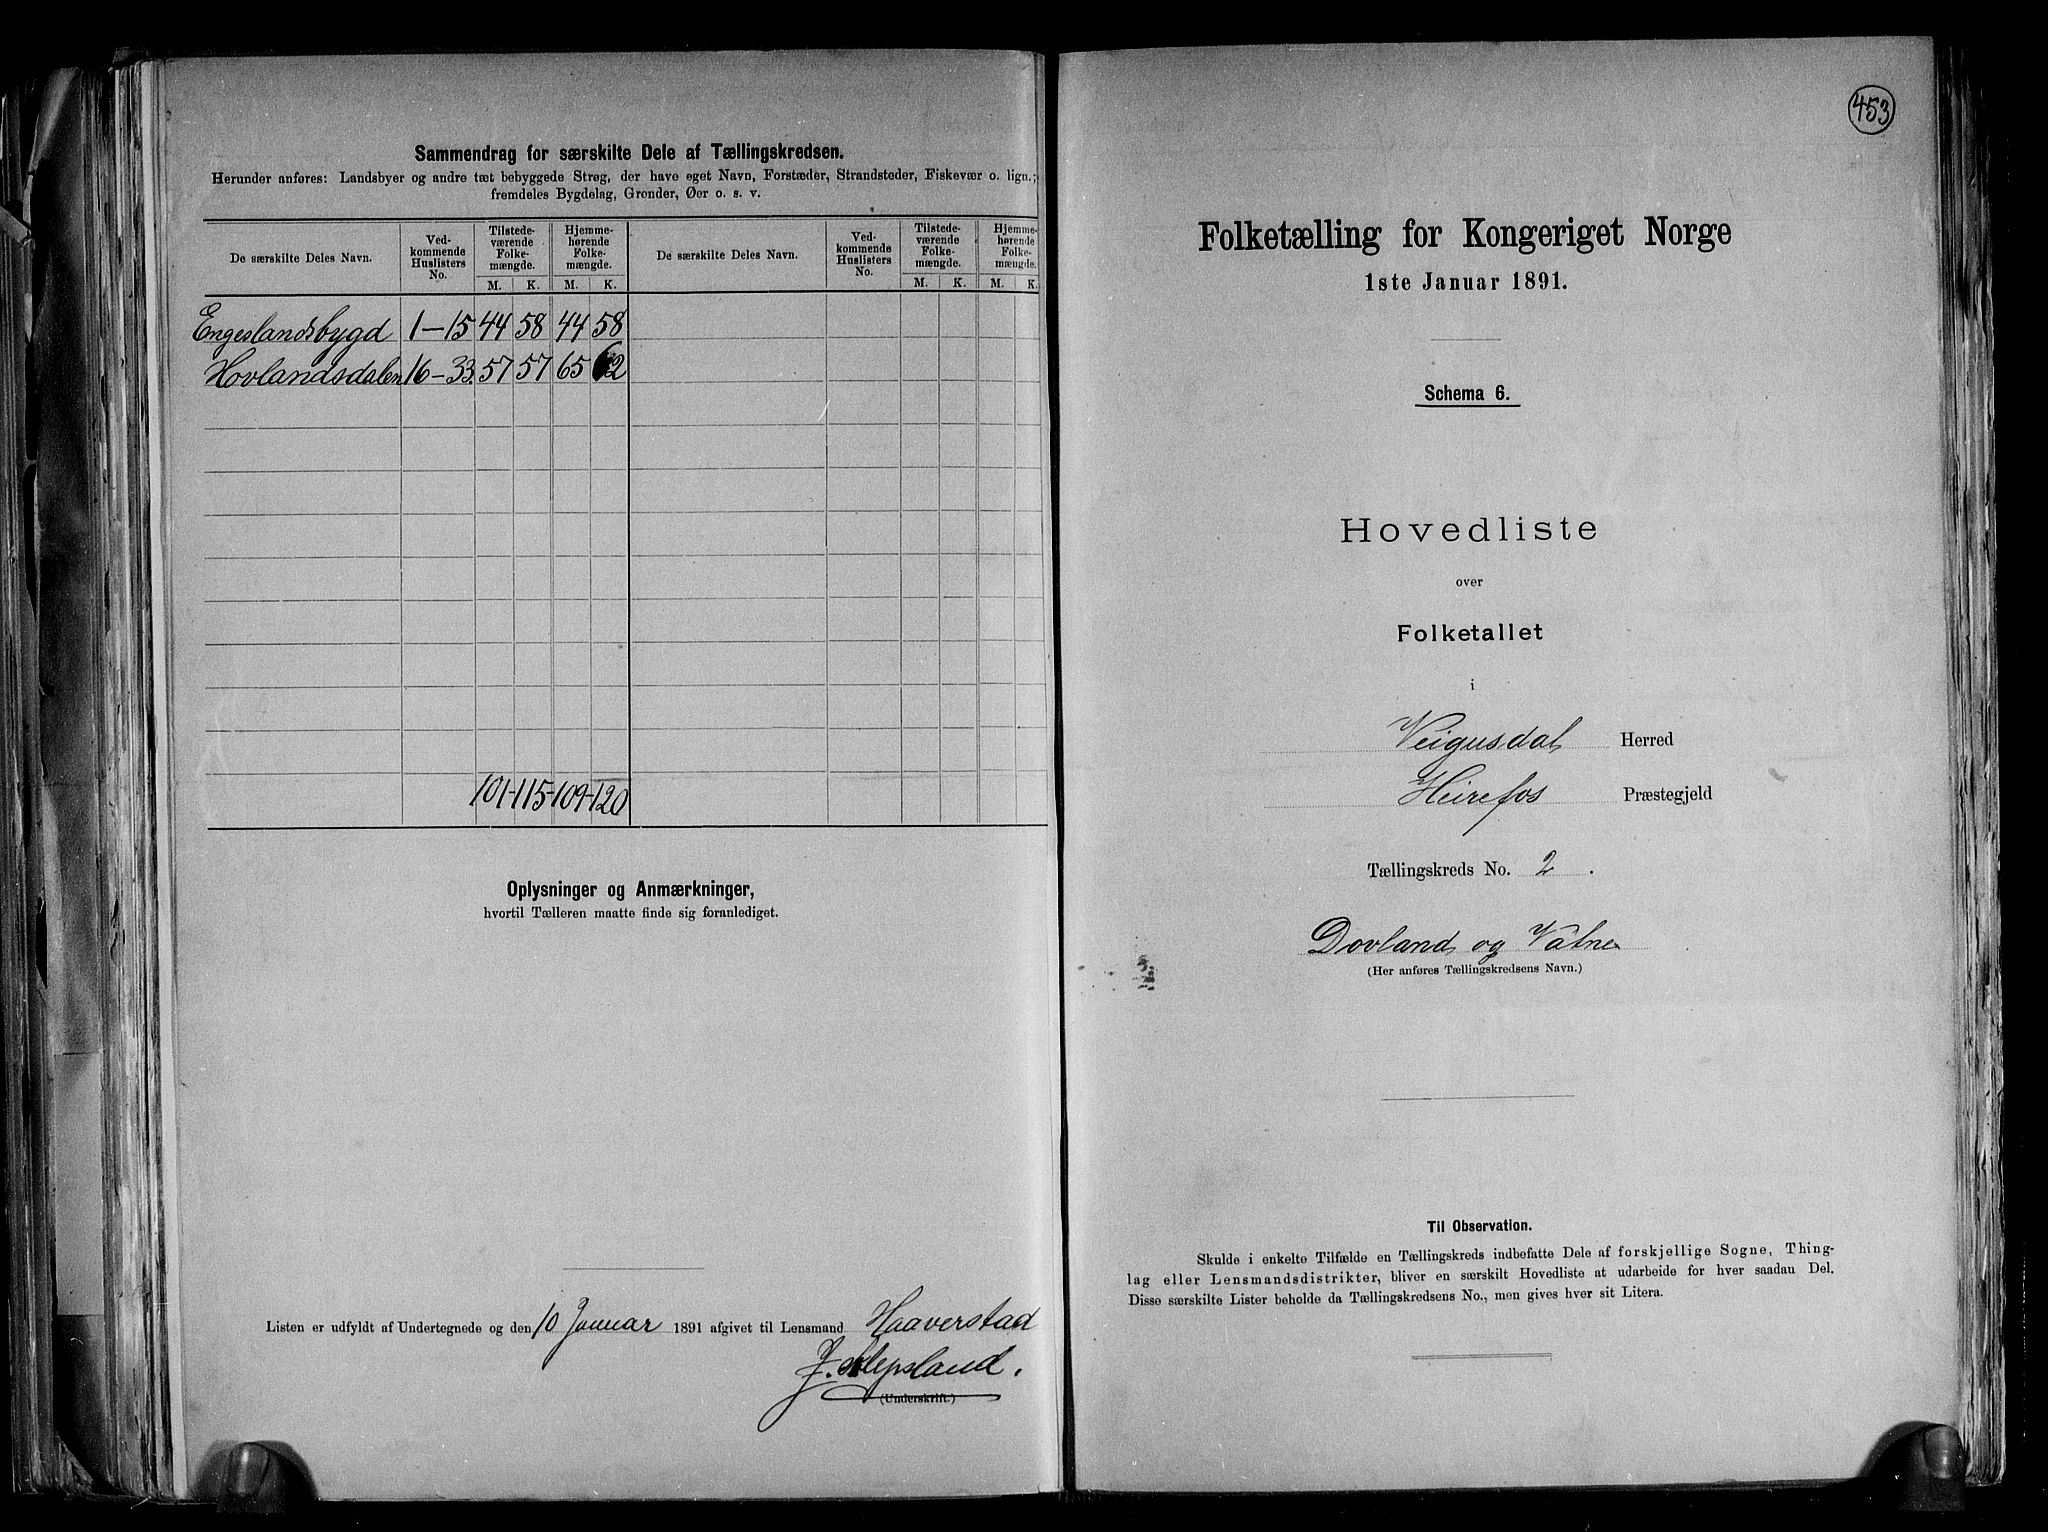 Sammendrag for særskilte Dele af Tællingskredsen.
Herunder anføres: Landsbyer og andre tæt bebyggede Strøg, der have eget Navn, Forstæder, Strandsteder, Fiskevær o. lign.;
fremdeles Bygdelag, Grender, Øer o. s. v.
De særskilte Deles Navn. Ved-kommende Huslisters No. Tilstede-værende Folke-mængde. Hjemme-hørende Folke-mængde. De særskilte Deles Navn. Ved-kommende Huslisters No. Tilstede-værende Folke-mængde. Hjemme-hørende Folke-mængde.
M. K. M. K. M. K. M. K.
Engeslandsbygd 1-15 44 58 44 58
Hovlandsdalen 16-33. 57 57 65 62
101-115-109-120
Oplysninger og Anmærkninger,
hvortil Tælleren maatte finde sig foranlediget.
Listen er udfyldt af Undertegnede og den 10 Januar 1891 afgivet til Lensmand Haaverstad
J. Klepsland.
(Underskrift.)
453
Folketælling for Kongeriget Norge
1ste Januar 1891.
Schema 6.
Hovedliste
over
Folketallet
i
Veigusdal Herred
Heirefos Præstegjeld
Tællingskreds No. 2.
Dovland og Vatne
(Her anføres Tællingskredsens Navn.)
Til Observation.
Skulde i enkelte Tilfælde en Tællingskreds indbefatte Dele af forskjellige Sogne, Thing-
lag eller Lensmandsdistrikter, bliver en særskilt Hovedliste at udarbeide for hver saadan Del.
Disse særskilte Lister beholde da Tællingskredsens No., men gives hver sit Litera.